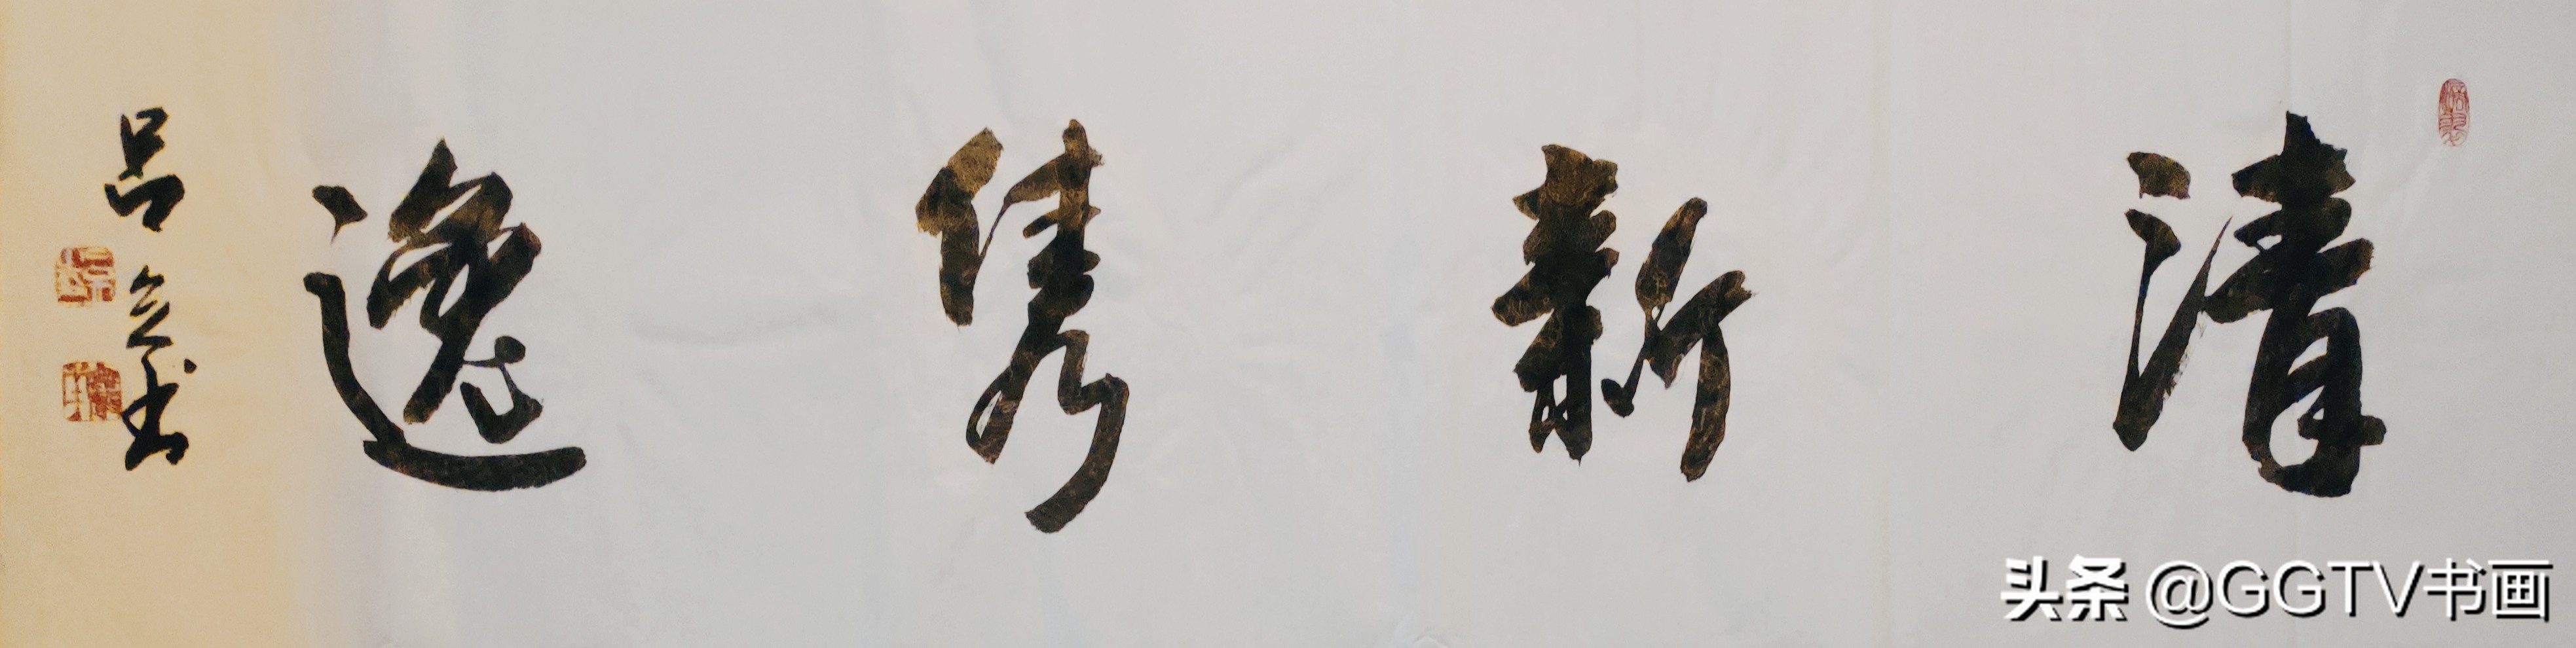 清新隽逸
吕立书
头条 @GGTV书画